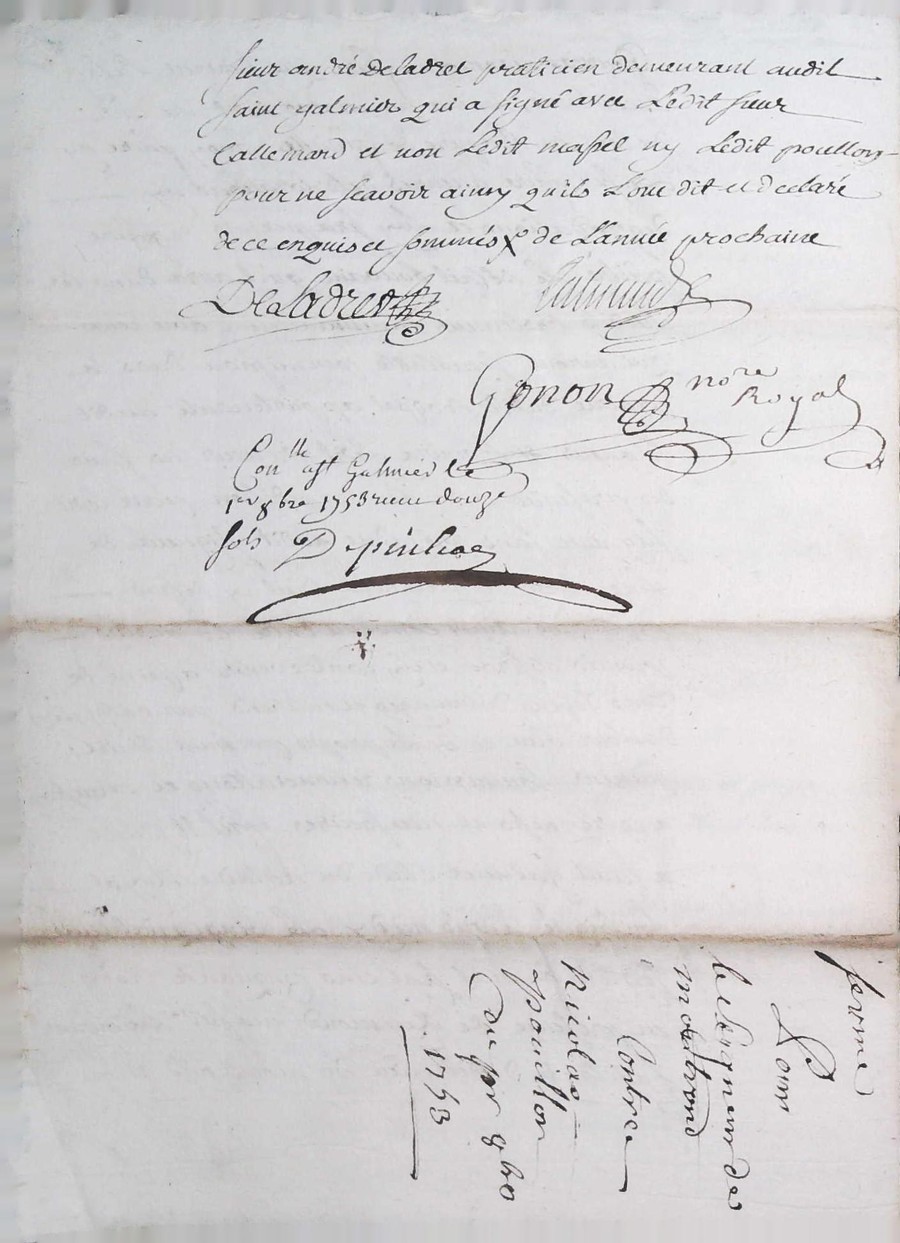 sieur andré Deladret praticien demeurant audit
saint galmier qui a signé avec Ledit sieur
Lallemand et non Ledit massel ny Ledit pouillon
pour ne scavoir ainsy quils L'ont dit et declaré
de ce enquis et sommés de L'année prochaine
Deladret
Gonon nore
Royal
Conlle a st Galmier le
1er 8bre 1753 receu douze
sols
ferme
Pour
le seigneur de
montrond
Contre
Nicolas
pouillon
du pr 8bre
1753